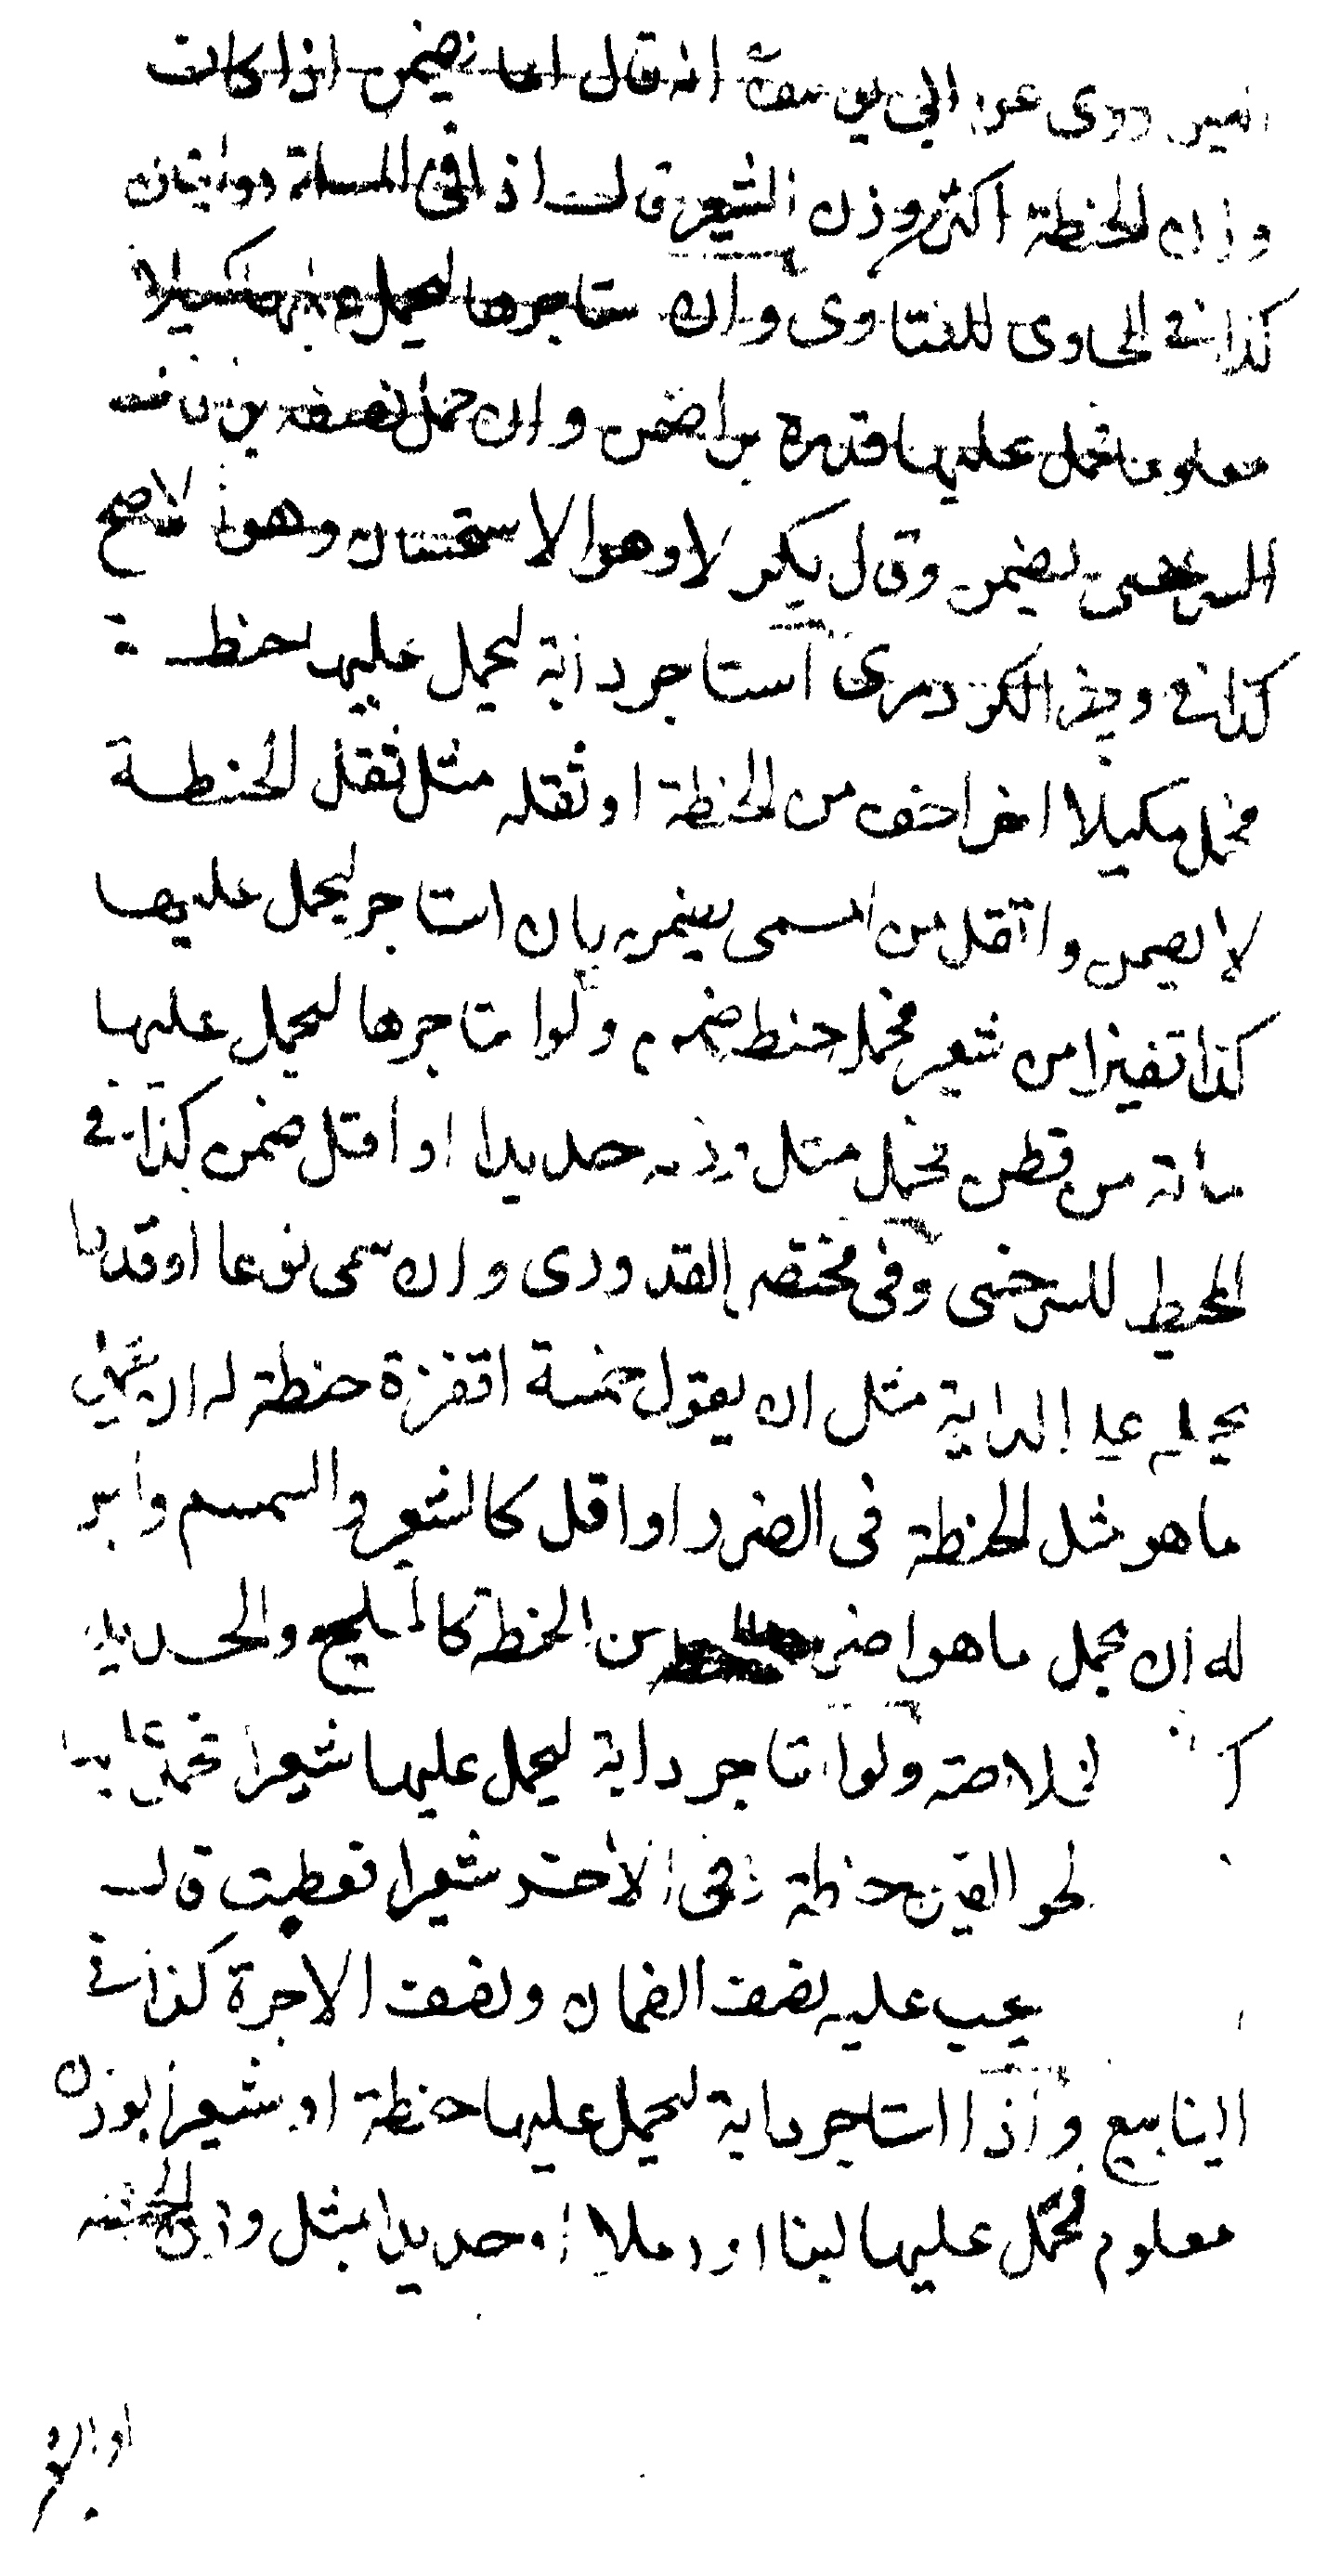 روى عن ابي يوسف انه قال انما يضمن اذا كانت
وزن الحنطة اكثر وزن الشعير قالت اذا في المسالة روايتان
كذا في الحاوى للفتاوى وان ستاجرها ليحمل عليها مكيلا
معلوما فحمل عليها قدره برا ضمن وان حمل نصفه برا قالت
السرخسى يضمن وقال بكر لا وهو الاستحسان وهو الاصح
كذا في وجيز الكردرى استاجر دابة ليحمل عليها حنطة
فحمل مكيلا اخر اخف من الحنطة او ثقله مثل ثقل الحنطة
لا يضمن واثقل من المسمى يضمن بان استاجر ليحمل عليها
كذا قفيزا من شعير فحمل حنط ضمن م ولو استاجرها ليحمل عليها
مائة من قطن فحمل مثل وزنه حديدا او اقل ضمن كذا في
المحيط للسرخسى وفى مختصر القدورى وان سمى نوعا او قدرا
يحمله على الدابة مثل ان يقول خمسة اقفزة حنطة له ان يحمل
ما هو مثل الحنطة فى الضرر او اقل كالشعير والسمسم وليس
له ان يحمل ما هو اضر من الحنطة كالمليح والحديد
لخلاصة ولو استاجر دابة ليحمل عليها شعيرا فحمل
الجوالقين حنطة وفى الاخر شعيرا فعطبت قال
يجب عليه نصف الضمان ونصف الاجرة كذا في
الينابيع واذا استاجر دابة ليحمل عليها حنطة او شعيرا بوزن
معلوم فحمل عليها لبنا او رملا او حديدا بمثل وزن الحنطة